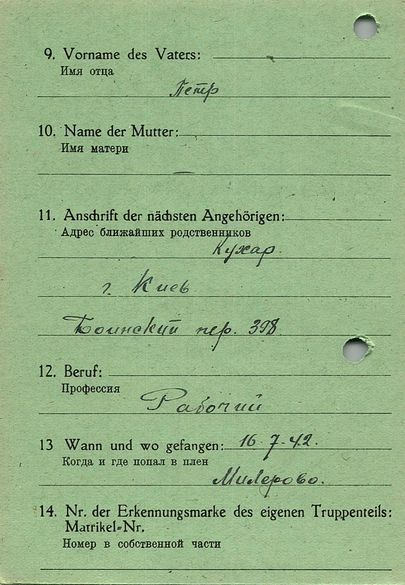 9. Vorname des Vaters:
Имя отца
Петр
10. Name der Mutter:
Имя матери
—
11. Anschrift der nächsten Angehörigen:
Адрес ближайших родственников
Кухар.
г. Киев
пер. 398
12. Beruf:
Профессия
Рабочий
13 Wann und wo gefangen: 16-7-42.
Когда и где попал в плен
Милерово.
14. Nr. der Erkennungsmarke des eigenen Truppenteils:
Matrikel-Nr.
Номер в собственной части